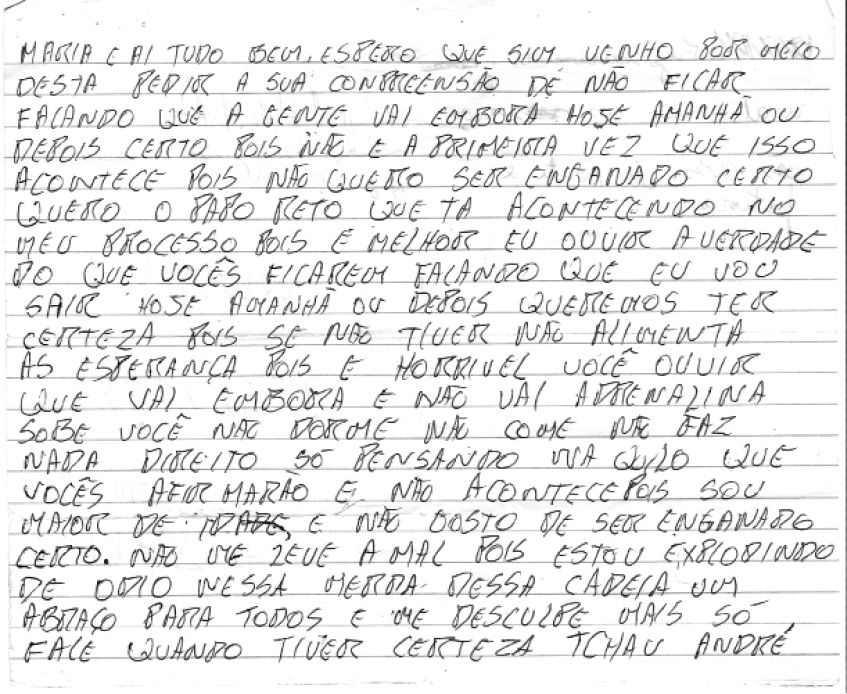 MARIA E AI TUDO BEM, ESPERO QUE SIM VENHO POR MEIO
DESTA PEDIR A SUA CONPREENSÃO DE NÃO FICAR
FALANDO QUE A GENTE VAI EMBORA HOSE AMANHÃ OU
DEPOIS CERTO POIS NÃO E A PRIMEIRA VEZ QUE ISSO
ACONTECE POIS NÃO QUERO SER ENGANADO CERTO
QUERO O PAPO RETO QUE TA ACONTECENDO NO
MEU PROCESSO POIS E MELHOR EU OUVIR A VERDADE
DO QUE VOCÊS FICAREM FALANDO QUE EU VOU
SAIR HOSE AMANHÃ OU DEPOIS QUEREMOS TER
CERTEZA POIS SE NÃO TIVER NÃO ALIMENTA
AS ESPERANÇA POIS E HORRIVEL VOCÊ OUVIR
QUE VAI EMBORA E NÃO VAI ADRENALINA
SOBE VOCÊ NÃO DORME NÃO COME NÃO FAZ
NADA DIREITO SÓ PENSANDO NA QUILO QUE
VOCÊS AFIRMARÃO E NÃO ACONTECE POIS SOU
MAIOR DE IDADE, E NÃO GOSTO DE SER ENGANADO
CERTO. NÃO ME LEVE A MAL POIS ESTOU EXPLODINDO
DE ODIO NESSA MERDA DESSA CADEIA UM
ABRAÇO PARA TODOS E ME DESCULPE MAIS SÓ
FALE QUANDO TIVER CERTEZA TCHAU ANDRÉ